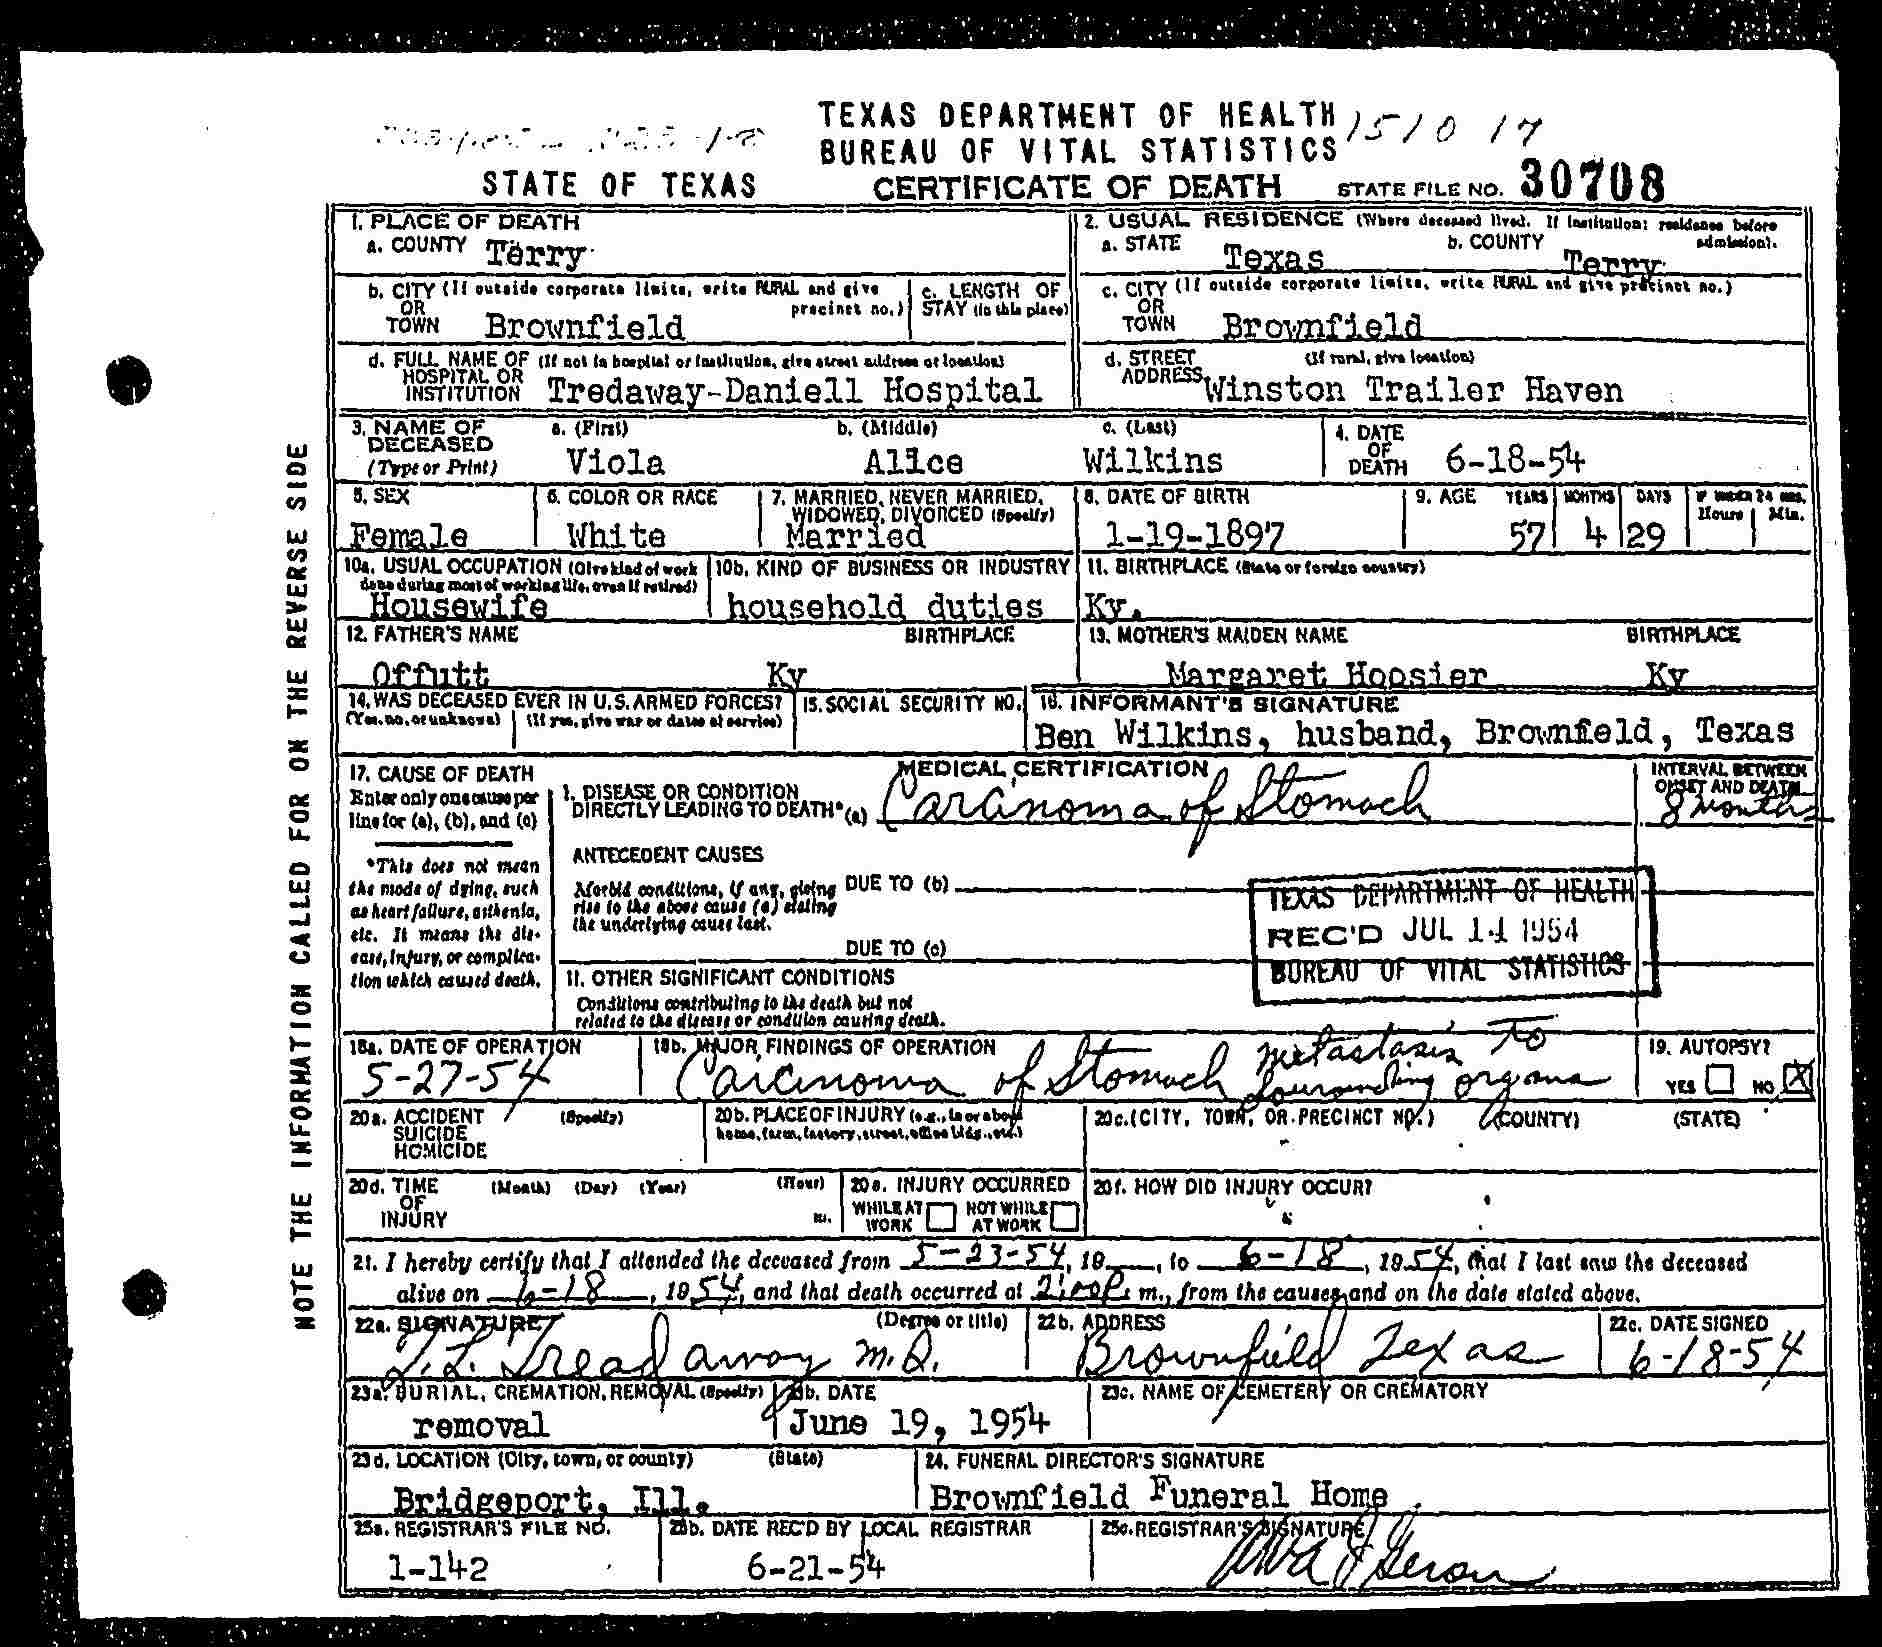 TEXAS DEPARTMENT OF HEALTH 151017
BUREAU OF VITAL STATISTICS
STATE OF TEXAS CERTIFICATE OF DEATH STATE FILE NO. 30708
NOTE THE INFORMATION CALLED FOR ON THE REVERSE SIDE
1. PLACE OF DEATH
a. COUNTY Terry
2. USUAL RESIDENCE (Where deceased lived. If institution: residence before admission).
a. STATE Texas b. COUNTY Terry
b. CITY (If outside corporate limits, write RURAL and give precinct no.)
OR
TOWN Brownfield
c. LENGTH OF STAY (in this place)
c. CITY (If outside corporate limits, write RURAL and give precinct no.)
OR
TOWN Brownfield
d. FULL NAME OF (If not in hospital or institution, give street address or location)
HOSPITAL OR
INSTITUTION Tredaway-Daniell Hospital
d. STREET (If rural, give location)
ADDRESS Winston Trailer Haven
3. NAME OF DECEASED (Type or Print)
a. (First) b. (Middle) c. (Last)
Viola Alice Wilkins
4. DATE OF DEATH 6-18-54
5. SEX
Female
6. COLOR OR RACE
White
7. MARRIED, NEVER MARRIED, WIDOWED, DIVORCED (Specify)
Married
8. DATE OF BIRTH
1-19-1897
9. AGE YEARS MONTHS DAYS IF UNDER 24 HRS. Hours Min.
57 4 29
10a. USUAL OCCUPATION (Give kind of work done during most of working life, even if retired)
Housewife
10b. KIND OF BUSINESS OR INDUSTRY
household duties
11. BIRTHPLACE (State or foreign country)
Ky.
12. FATHER'S NAME BIRTHPLACE
Offutt Ky
13. MOTHER'S MAIDEN NAME BIRTHPLACE
Margaret Hoosier Ky
14. WAS DECEASED EVER IN U.S. ARMED FORCES?
(Yes, no, or unknown) (If yes, give war or dates of service)
15. SOCIAL SECURITY NO.
16. INFORMANT'S SIGNATURE
Ben Wilkins, husband, Brownfeld, Texas
17. CAUSE OF DEATH
Enter only one cause per line for (a), (b), and (c)
*This does not mean the mode of dying, such as heart failure, asthenia, etc. It means the disease, injury, or complication which caused death.
MEDICAL CERTIFICATION
I. DISEASE OR CONDITION
DIRECTLY LEADING TO DEATH* (a) Carcinoma of Stomach
INTERVAL BETWEEN ONSET AND DEATH
8 months
ANTECEDENT CAUSES
Morbid conditions, if any, giving rise to the above cause (a) stating the underlying cause last.
DUE TO (b)
DUE TO (c)
TEXAS DEPARTMENT OF HEALTH
REC'D JUL 14 1954
BUREAU OF VITAL STATISTICS
II. OTHER SIGNIFICANT CONDITIONS
Conditions contributing to the death but not related to the disease or condition causing death.
18a. DATE OF OPERATION
5-27-54
18b. MAJOR FINDINGS OF OPERATION
Carcinoma of Stomach metastasis To Sourounding organs
19. AUTOPSY?
YES NO X
20a. ACCIDENT (Specify)
SUICIDE
HOMICIDE
20b. PLACE OF INJURY (e.g., in or about home, farm, factory, street, office bldg., etc.)
20c. (CITY, TOWN, OR PRECINCT NO.) (COUNTY) (STATE)
20d. TIME OF INJURY (Month) (Day) (Year) (Hour) m.
20e. INJURY OCCURRED
WHILE AT WORK NOT WHILE AT WORK
20f. HOW DID INJURY OCCUR?
21. I hereby certify that I attended the deceased from 5-23-54, 19__, to 6-18, 1954, that I last saw the deceased
alive on 6-18, 1954, and that death occurred at 2:00 P. m., from the causes and on the date stated above.
22a. SIGNATURE (Degree or title)
T. L. Treadaway M.D.
22b. ADDRESS
Brownfield Texas
22c. DATE SIGNED
6-18-54
23a. BURIAL, CREMATION, REMOVAL (Specify)
removal
23b. DATE
June 19, 1954
23c. NAME OF CEMETERY OR CREMATORY
23d. LOCATION (City, town, or county) (State)
Bridgeport, Ill.
24. FUNERAL DIRECTOR'S SIGNATURE
Brownfield Funeral Home
25a. REGISTRAR'S FILE NO.
1-142
25b. DATE REC'D BY LOCAL REGISTRAR
6-21-54
25c. REGISTRAR'S SIGNATURE